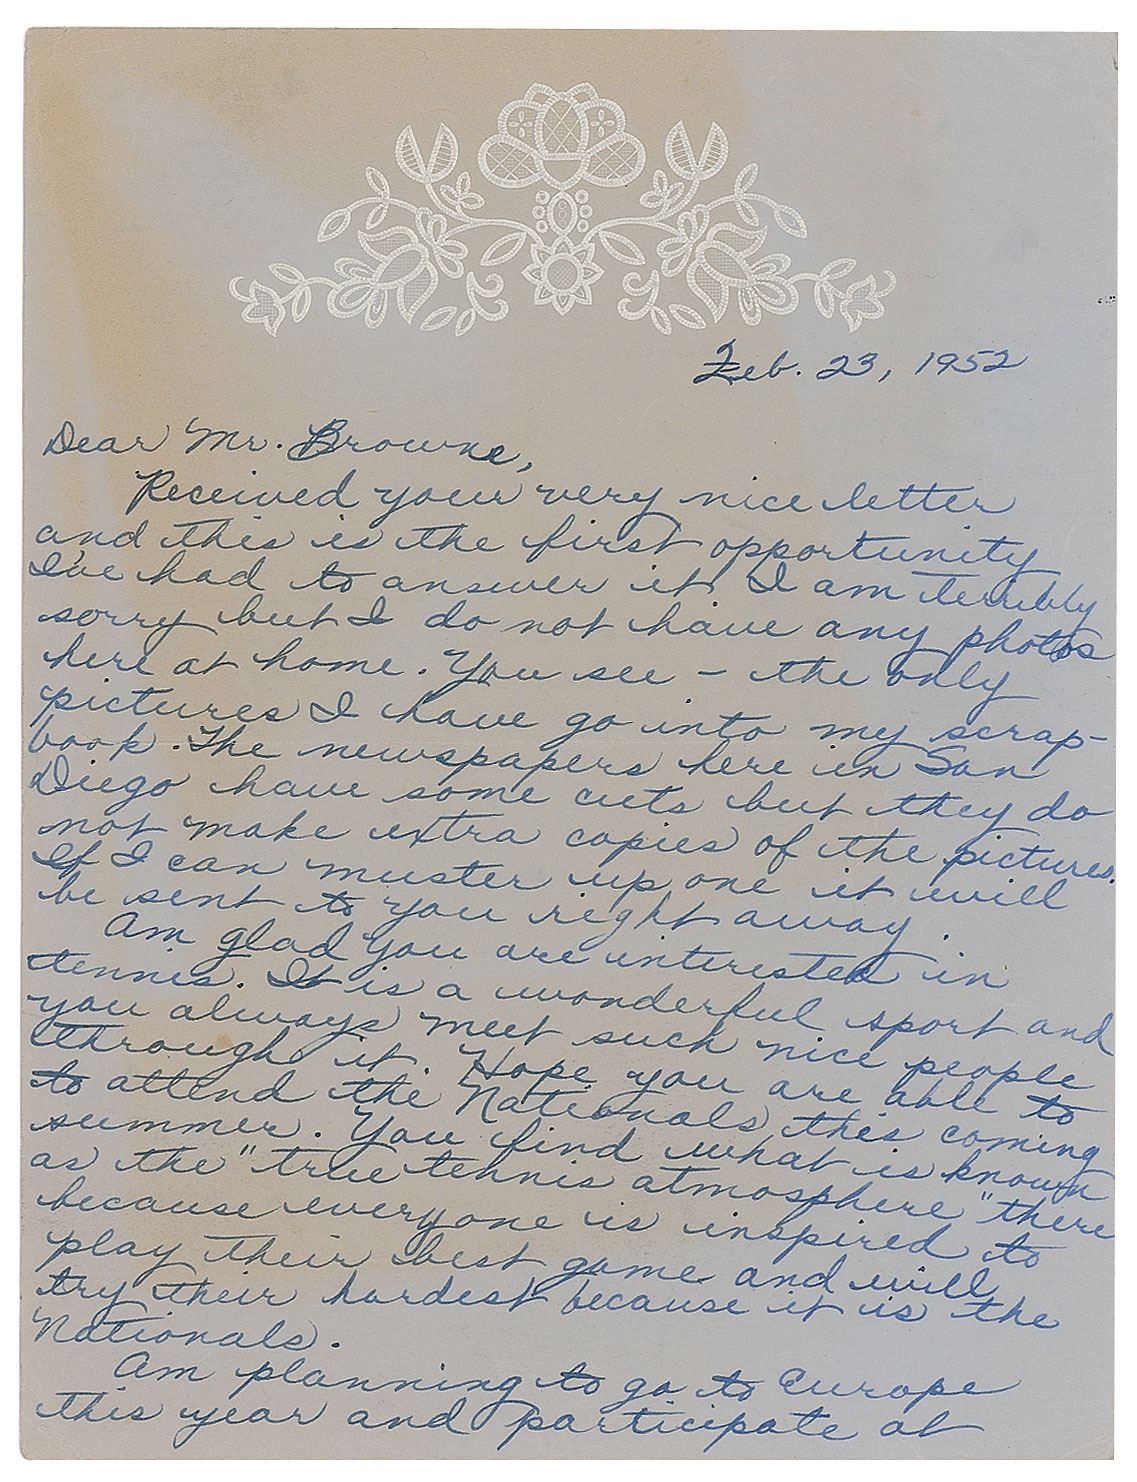 Feb. 23, 1952
Dear Mr. Browne,
Received your very nice letter
and this is the first opportunity
I've had to answer it. I am terribly
sorry but I do not have any photos
here at home. You see – the only
pictures I have go into my scrap-
book. The newspapers here in San
Diego have some cuts but they do
not make extra copies of the pictures.
If I can muster up one it will
be sent to you right away.
Am glad you are interested in
tennis. It is a wonderful sport and
you always meet such nice people
through it. Hope you are able to
to attend the Nationals this coming
summer. You find what is known
as the "true tennis atmosphere" there
because everyone is inspired to
play their best game and will
try their hardest because it is the
Nationals.
Am planning to go to Europe
this year and participate at